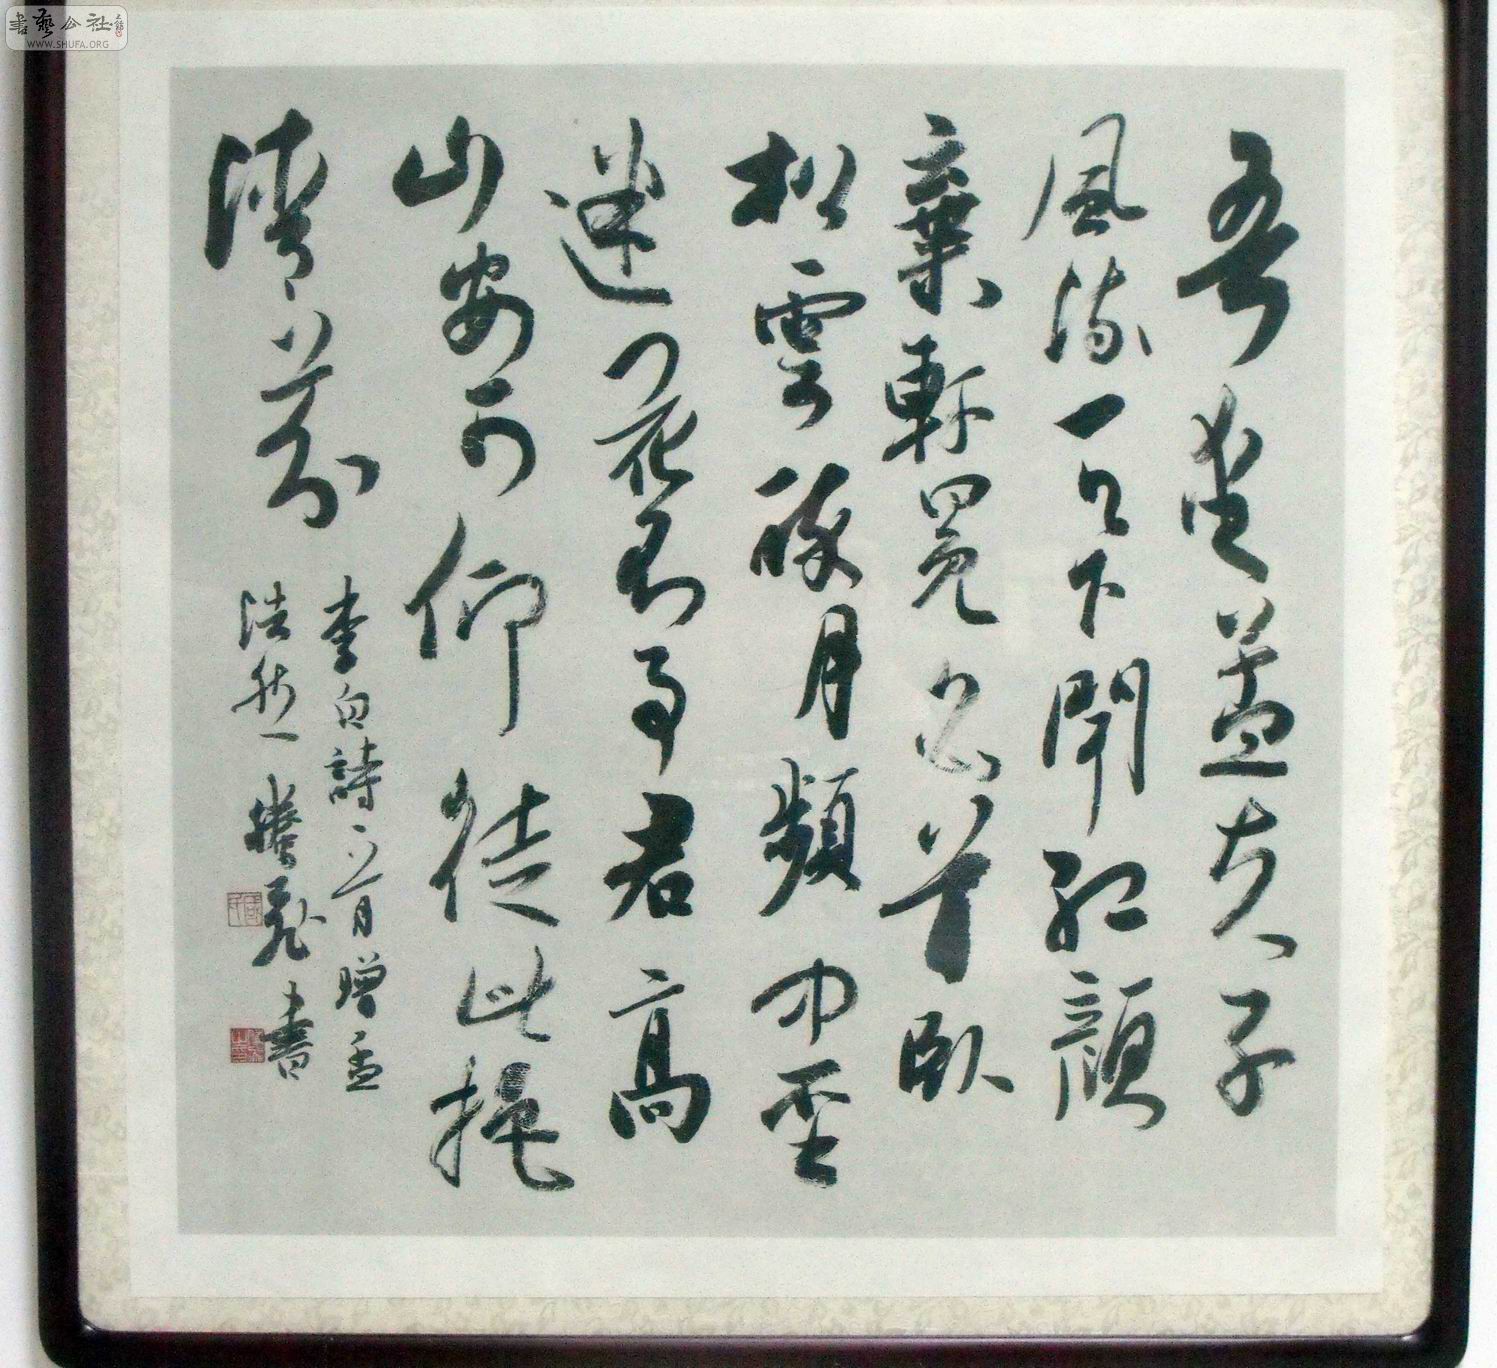 書藝公社
WWW.SHUFA.ORG
吾愛孟夫子
風流天下聞紅顔
棄軒冕白首臥
松雲醉月頻中聖
迷花不事君高
山安可仰徒此挹
清芬
李白詩一首贈孟
浩然 書